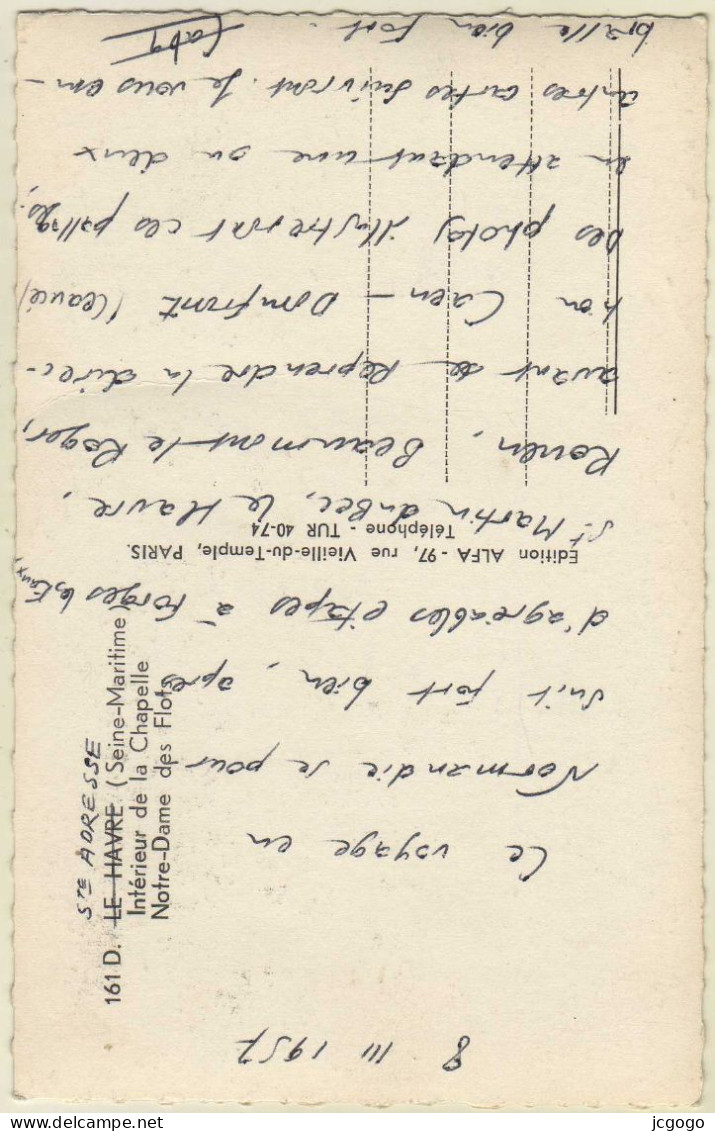 8 III 1957
Ce voyage en
Normandie se pour
suit fort bien, après
d'agréables étapes à Forges les Eaux,
St Martin du Bec, le Havre,
Rouen, Beaumont-le Roger,
avant de reprendre la direc-
tion Caen - Domfront
Des photos illustreront ces passages,
en attendant une ou deux
autres cartes suivront. Je vous em-
brasse bien fort.
STE ADRESSE
161 D. LE HAVRE (Seine-Maritime)
Intérieur de la Chapelle
Notre-Dame des Flots
Edition ALFA - 97, rue Vieille-du-Temple, PARIS.
Téléphone - TUR 40-74
jcgogo